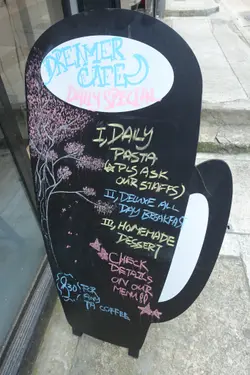 DREAMER
CAFE
DAILY SPECIAL
I, DAILY
PASTA
(PLS ASK
OUR STAFFS)
II, DELUXE ALL
DAY BREAKFAST
III, HOMEMADE
DESSERT
CHECK
DETAILS
ON OUR
MENU!!
$30 FOR
TEA COFFEE